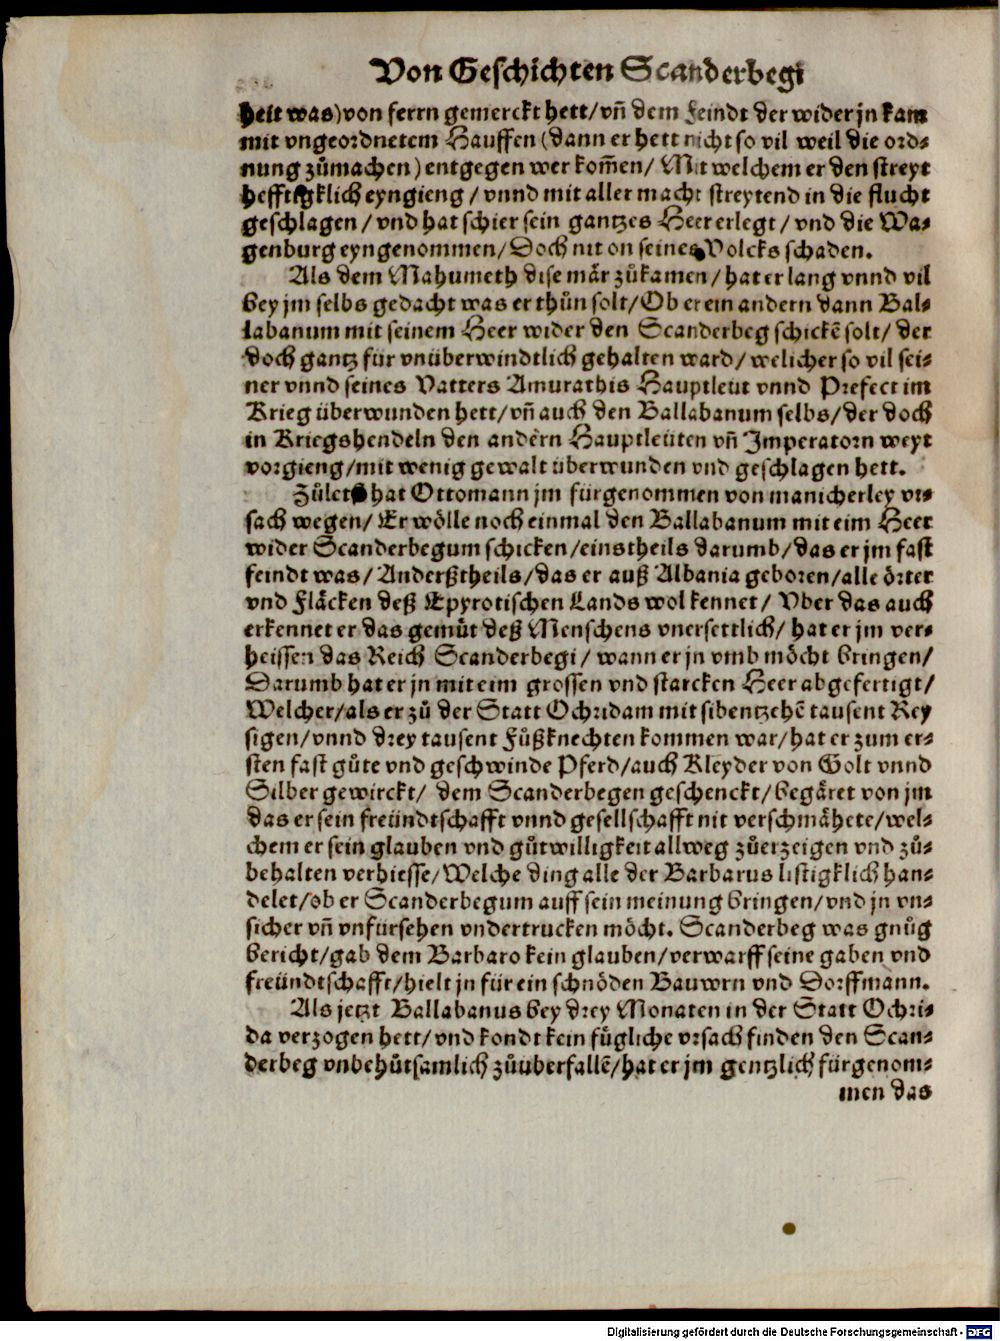 Von Geschichten Scanderbegi
heit was) von ferrn gemerckt hett/ vñ dem Feindt der wider jn kam
mit vngeordnetem Hauffen (dann er hett nicht so vil weil die ord⸗
nung zůmachen) entgegen wer kom̃en/ Mit welchem er den streyt
hefftigklich eyngieng / vnnd mit aller macht streytend in die flucht
geschlagen / vnd hat schier sein gantzes Heer erlegt / vnd die Wa⸗
genburg eyngenommen/ Doch nit on seines Volcks schaden.
Als dem Mahumeth dise mär zůkamen / hat er lang vnnd vil
bey jm selbs gedacht was er thůn solt/ Ob er ein andern dann Bal⸗
labanum mit seinem Heer wider den Scanderbeg schickẽ solt/ der
doch gantz für vnüberwindtlich gehalten ward/ welicher so vil sei⸗
ner vnnd seines Vatters Amurathis Hauptleut vnnd Prefect im
Krieg überwunden hett/ vñ auch den Ballabanum selbs/ der doch
in Kriegshendeln den andern Hauptleüten vñ Imperatorn weyt
vorgieng/ mit wenig gewalt überwunden vnd geschlagen hett.
Zůletst hat Ottomann jm fürgenommen von manicherley vr⸗
sach wegen/ Er wölle noch einmal den Ballabanum mit eim Heer
wider Scanderbegum schicken / einstheils darumb/ das er jm fast
feindt was/ Anderßtheils/ das er auß Albania geboren/ alle örter
vnd Fläcken deß Epyrotischen Lands wol kennet/ Vber das auch
erkennet er das gemüt deß Menschens vnersettlich/ hat er jm ver⸗
heissen das Reich Scanderbegi / wann er jn vmb möcht bringen/
Darumb hat er jn mit eim grossen vnd starcken Heer abgefertigt/
Welcher/ als er zů der Statt Ochridam mit sibentzehẽ tausent Rey
sigen/ vnnd drey tausent Fůßknechten kommen war/ hat er zum er⸗
sten fast gůte vnd geschwinde Pferd/ auch Kleyder von Golt vnnd
Silber gewirckt/ dem Scanderbegen geschenckt/ begäret von jm
das er sein freündtschafft vnnd gesellschafft nit verschmähete/ wel⸗
chem er sein glauben vnd gůtwilligkeit allweg zůerzeigen vnd zů⸗
behalten verhiesse/ Welche ding alle der Barbarus listigklich han⸗
delet/ ob er Scanderbegum auff sein meinung bringen/ vnd jn vn⸗
sicher vñ vnfürsehen vndertrucken möcht. Scanderbeg was gnůg
bericht/ gab dem Barbaro kein glauben/ verwarff seine gaben vnd
freündtschafft/ hielt jn für ein schnöden Bauwrn vnd Dorffmann.
Als jetzt Ballabanus bey drey Monaten in der Statt Ochri⸗
da verzogen hett/ vnd kondt kein fůgliche vrsach finden den Scan⸗
derbeg vnbehůtsamlich zůuberfallẽ/ hat er jm gentzlich fürgenom⸗
men das
Digitalisierung gefördert durch die Deutsche Forschungsgemeinschaft - DFG